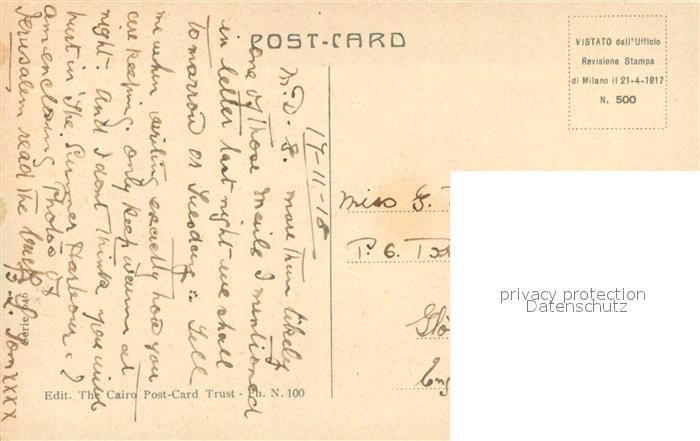 POST-CARD
VISTATO dall'Ufficio
Revisione Stampa
di Milano il 21-4-1917
N. 500
17-11-18
M. D. G. more than likely
one of those Mails I mentioned
in letter last night we shall
to-morrow or Tuesday. Tell
me when writing exactly how you
are keeping. Only keep warm at
night - and I dont think you will
hurt in The Summer Harbour. I
am enclosing Photos of
Jerusalem read the
Tom XXXX
Miss G.
P. O.
Glo
Eng
Serie 906
Edit. The Cairo Post-Card Trust - Ph. N. 100
privacy protection
Datenschutz